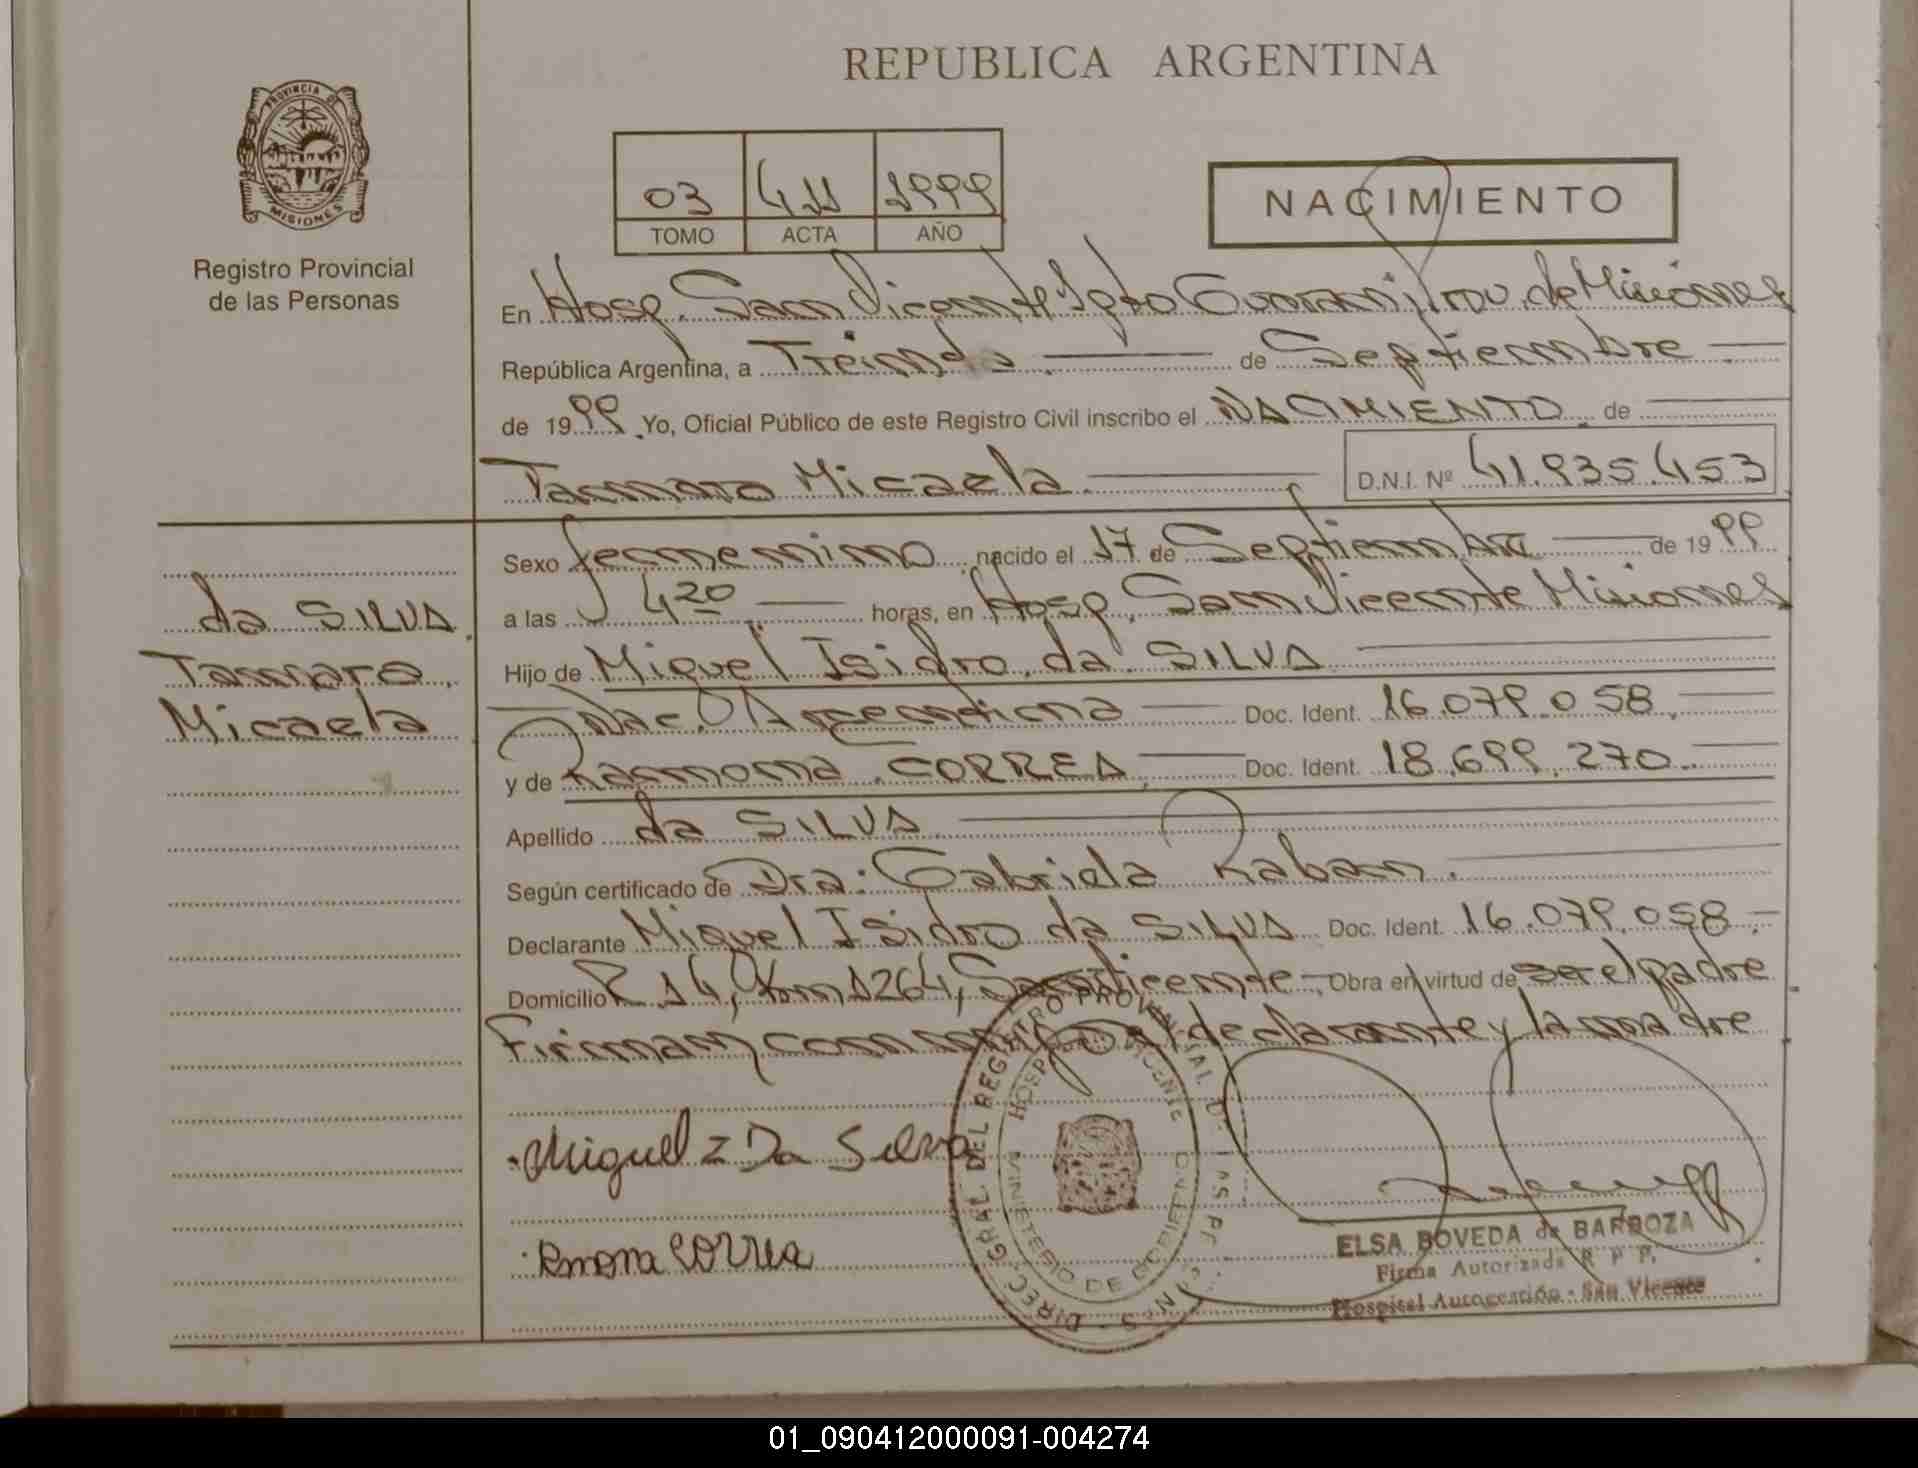 REPUBLICA ARGENTINA
PROVINCIA DE
MISIONES
Registro Provincial
de las Personas
03 411 1999
TOMO ACTA AÑO
NACIMIENTO
En Hosp. San Vicente Dpto Guarani, Prov. de Misiones
República Argentina, a Treinta de Septiembre
de 1999 Yo, Oficial Público de este Registro Civil inscribo el NACIMIENTO de
Tamara Micaela D.N.I. Nº 41.935.453
da SILVA
Tamara
Micaela
Sexo femenino nacido el 17 de Septiembre de 1999
a las 4 20 horas, en Hosp. San Vicente Misiones
Hijo de Miguel Isidro da SILVA
Nac. Argentina Doc. Ident. 16.079.058
y de Ramona CORREA Doc. Ident. 18.699.270
Apellido da SILVA
Según certificado de Dra: Gabriela Raban.
Declarante Miguel Isidro da SILVA Doc. Ident. 16.079.058
Domicilio R.14, Km 1264, San Vicente Obra en virtud de ser el padre
Firman conmigo el declarante y la madre
Miguel I Da Silva
Rmona Correa
DIREC. GRAL. DEL REGISTRO PROVINCIAL
MINISTERIO DE
ELSA BOVEDA de BARBOZA
Firma Autorizada R P P.
Hospital Autogestión - San Vicente
01_090412000091-004274